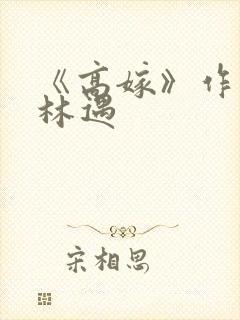 《高嫁》作
林遇
宋相思